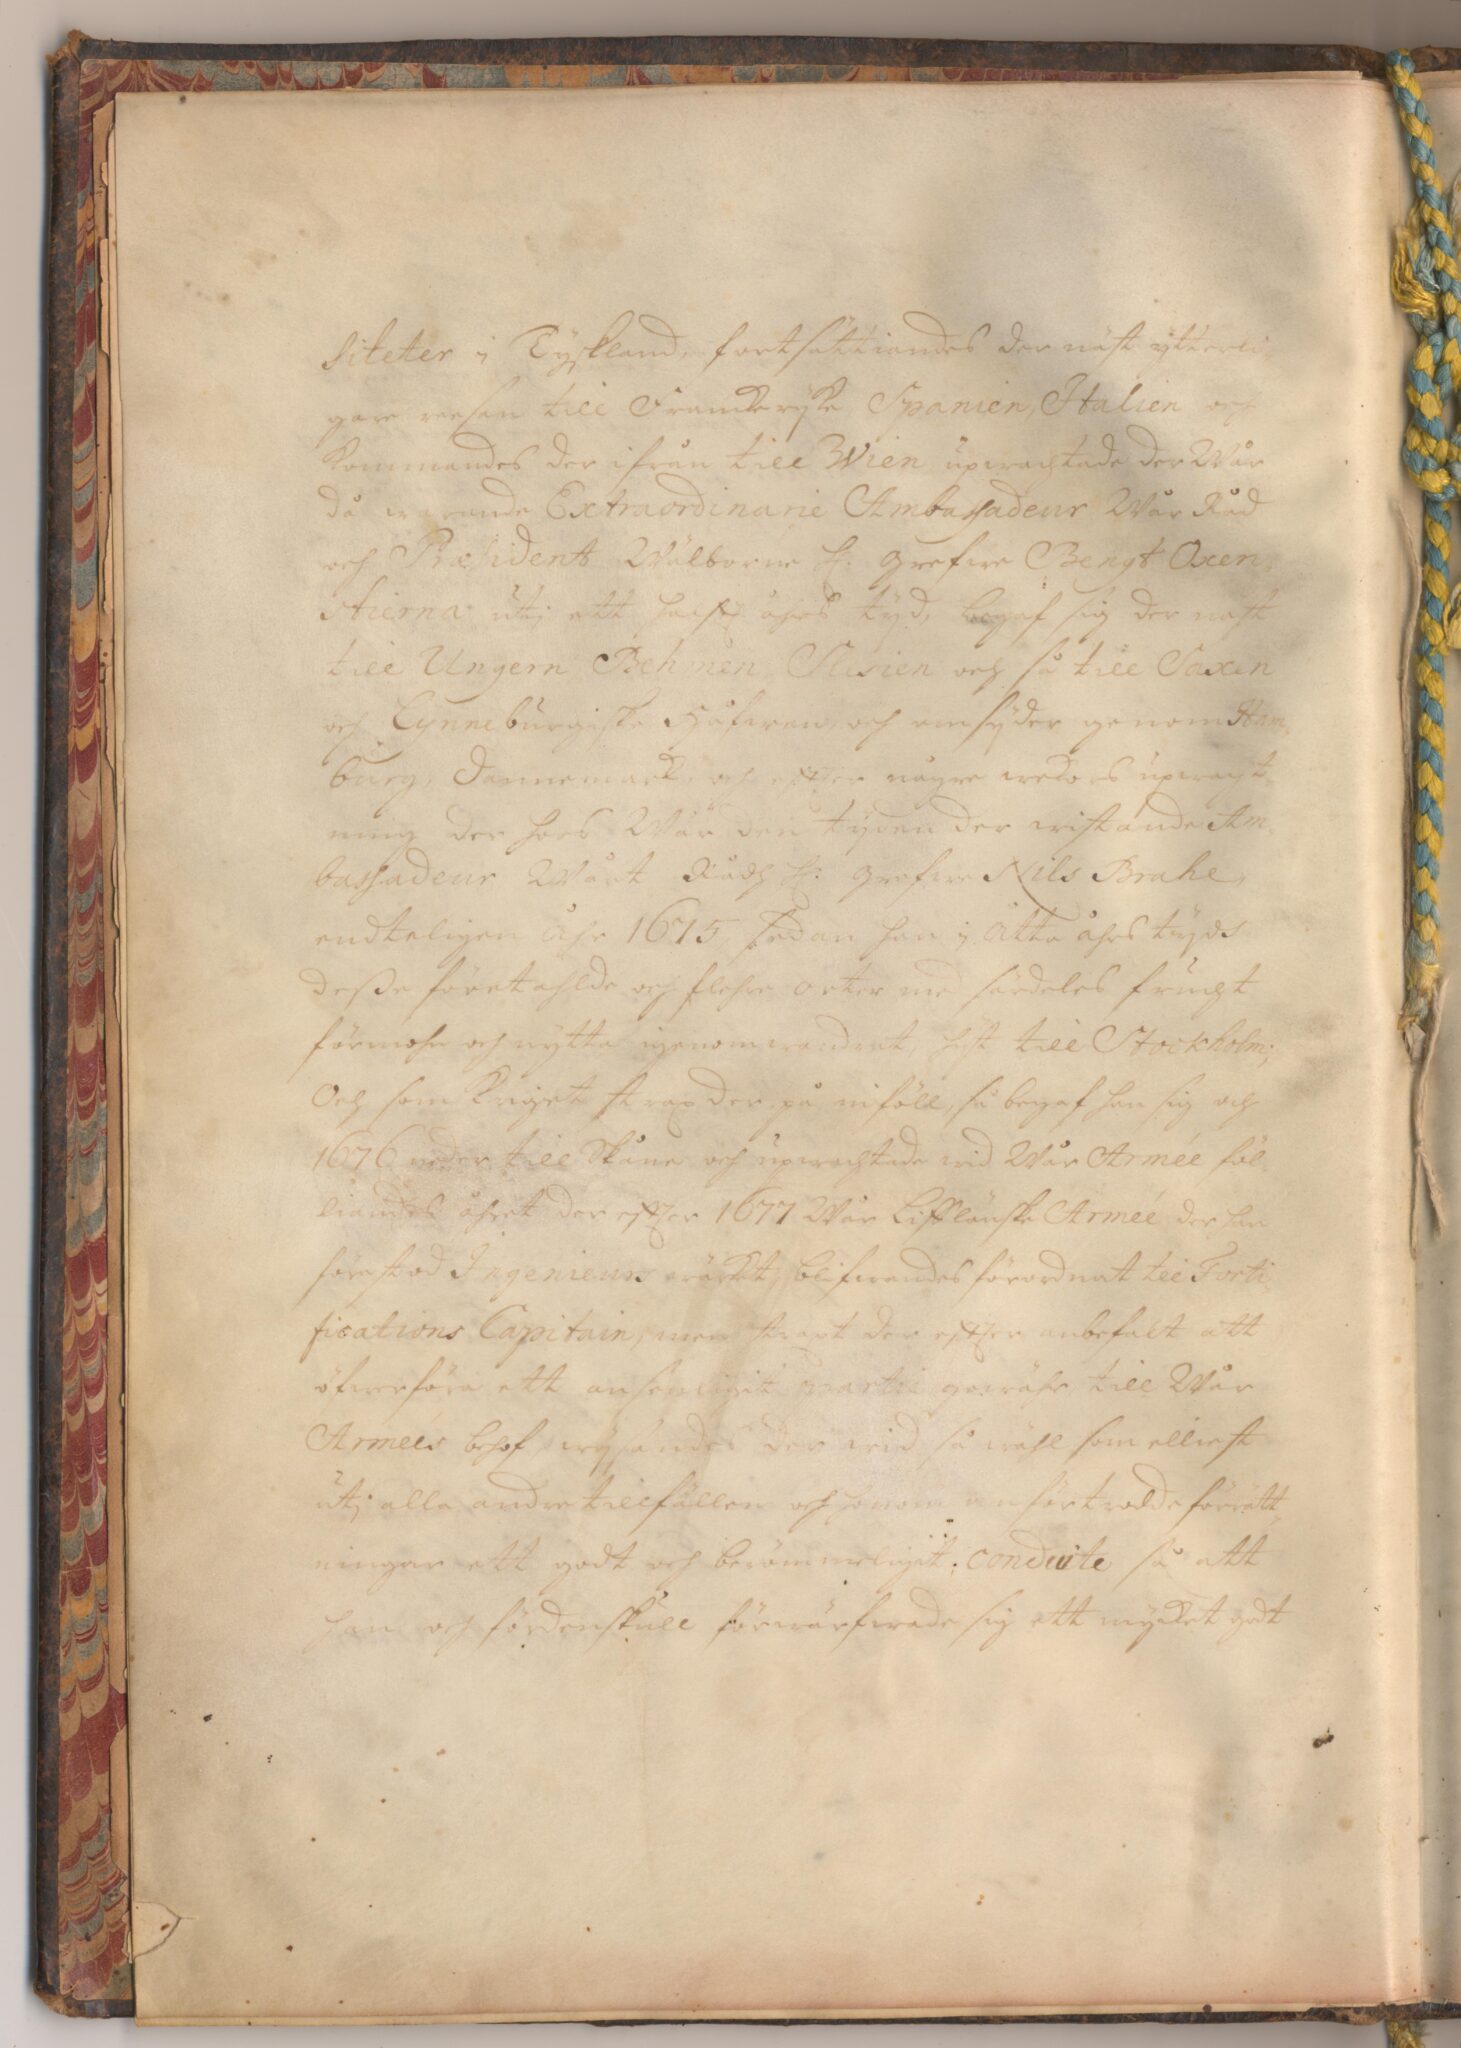 siteter i Tyskland, fortsättiandes der näst ytterli
gare reesan till Franckryke Spanien, Italien och
kommandes der ifrån till Wien upwachtade der Wår
då warande Extraordinarie Ambassadeur Wår Råd
och Præsident Wälborne H. Grefwe Bengt Oxen-
stierna uti ett halft åhrs tyd, begaf sig der näst
till Ungern, Behmen, Slesien och så till Saxen
och Lynneburgiske Håfwen, och omsyder genom Ham-
burg, Dannemarck, och efter några wekors upwacht-
ning der hoos Wår den tyden der wistande Am-
bassadeur Wårt Rådh H. Grefwe Nils Brahe,
endteligen åhr 1675, sedan han i åtta åhrs tyds
deße företahlde och flehre orter med särdeles frucht
förmohn och nytta igenomwandrat, hijt till Stockholm;
Och som kriget strax der på inföll, så begaf han sig och
1676 neder till Skåne och upwachtade wid Wår Armée föl-
liandes åhret der efter 1677 Wår Lifflänske Armée der han
förestod Ingenieurs wärket, blifwandes förordnat till Forti-
fications Capitain, men straxt der efter anbefalt att
öfwerföra ett ansenligit partie gewähr till Wår
Armées behof, wysandes der wid så wähl som elliest
uti alla andre tillfällen och honom anförtrodde förrätt-
ningar ett godt och berömmeligit conduite så att
han och fördenskull förwärfwade sig ett mycket godt